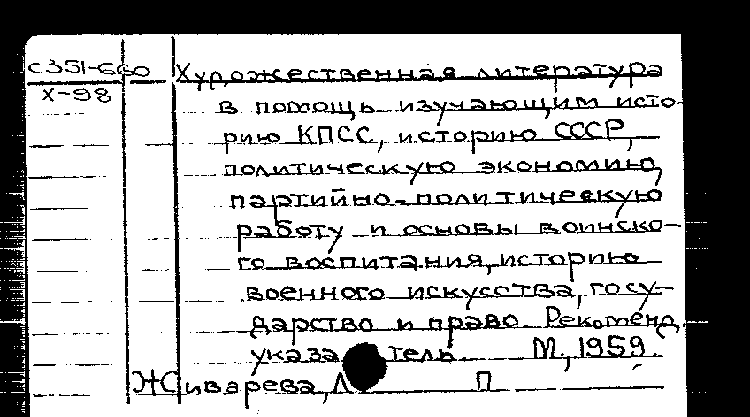 С351-660 Художественная литература
Х-98
в помощь изучающим исто-
рию КПСС, историю СССР,
политическую экономию,
партийно-политическую
работу и основы воинско-
го воспитания, историю
военного искусства, госу-
дарство и право. Рекоменд.
указатель. М, 1959.
Живарева, Л П